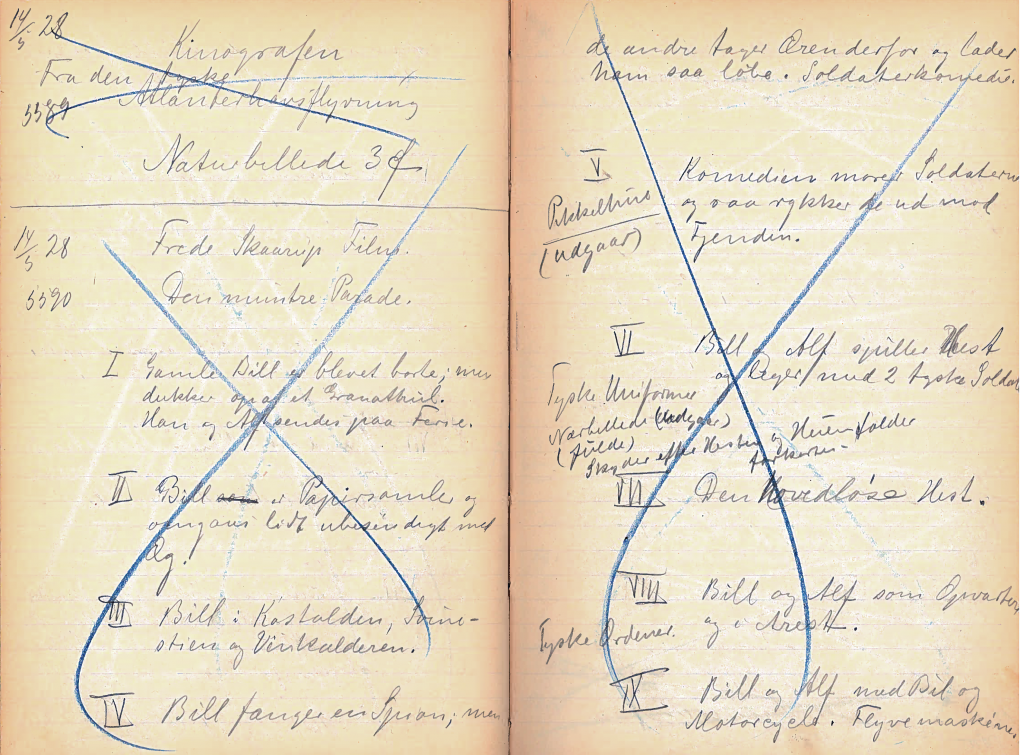 14/5 28
Kinografen
Fra den tyske
5589 Atlanterhavsflyvning
Naturbillede 3
14/5 28 Frede Skaarup Film.
5590 Den muntre Parade.
I Gamle Bill er blevet borte; men
dukker op af et Granathul.
Han og Alf sendes paa Ferie.
II Bill som er Papirsamler og
omgaas lidt ubesindigt med
Æg.
III Bill i Kostalden, Svine-
stien og Vinkælderen.
IV Bill fanger en Spion; men
de andre tager Ærenderfor og lader
ham saa løbe. Soldaterkomedie.
V Komedien morer Soldaterne
og saa rykker de ud mod
Fjenden.
Pikkelhue
(udgaar)
VI Bill og Alf spiller Hest
og leger med 2 tyske Soldat
Tyske Uniformer
Nærbillede (udgaar)
(fulde)
Skyder efter Hesten og falder
VII Den hovedløse Hest.
VIII Bill og Alf som Opvarter
og i Arest.
Tyske Ordener.
IX Bill og Alf med Bil og
Motorcycle. Flyvemaskine.